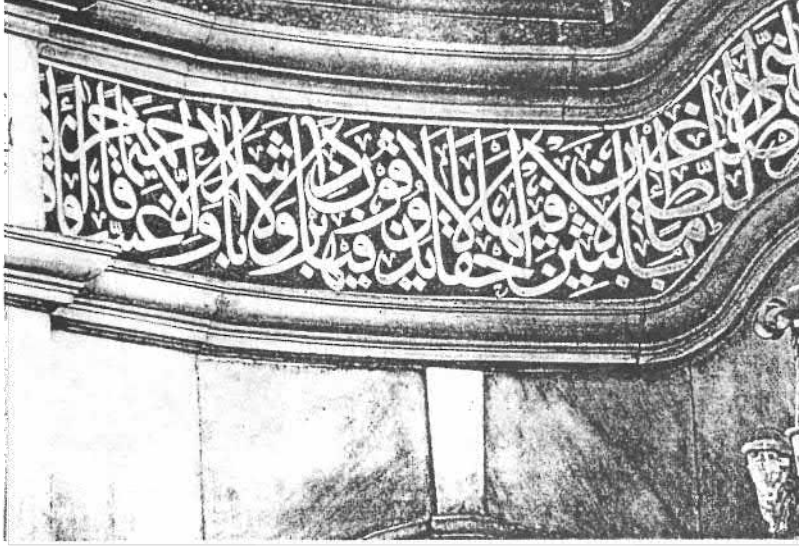 للطاغين مآبا لابثين فيها احقابا لا يذوقون فيها بردا ولا شرابا الا حميما وغساقا جزاء